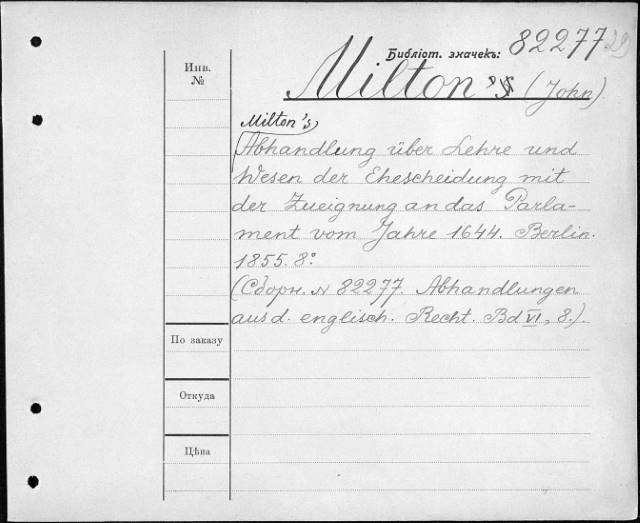 Библіот. значекъ: 82277
Инв.
№
Milton (John)
Milton's
Abhandlung über Lehre und
Wesen der Ehescheidung mit
der Zueignung an das Parla-
ment vom Jahre 1644. Berlin.
1855. 8º
(Сборн. N 82277. Abhandlungen
aus d. englisch. Recht. Bd VI, 8.).
По заказу
Откуда
Цѣна